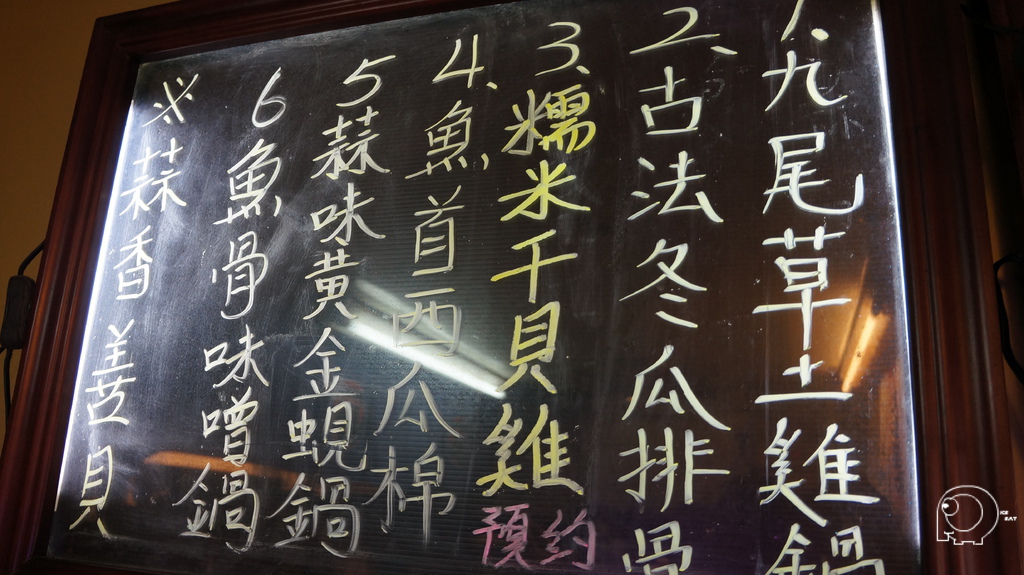 1、九尾草土雞鍋
2、古法冬瓜排骨
3、糯米干貝雞 預約
4、魚首西瓜棉
5蒜味黃金蜆鍋
6魚骨味噌鍋
※蒜香
貝
ICE
EAT